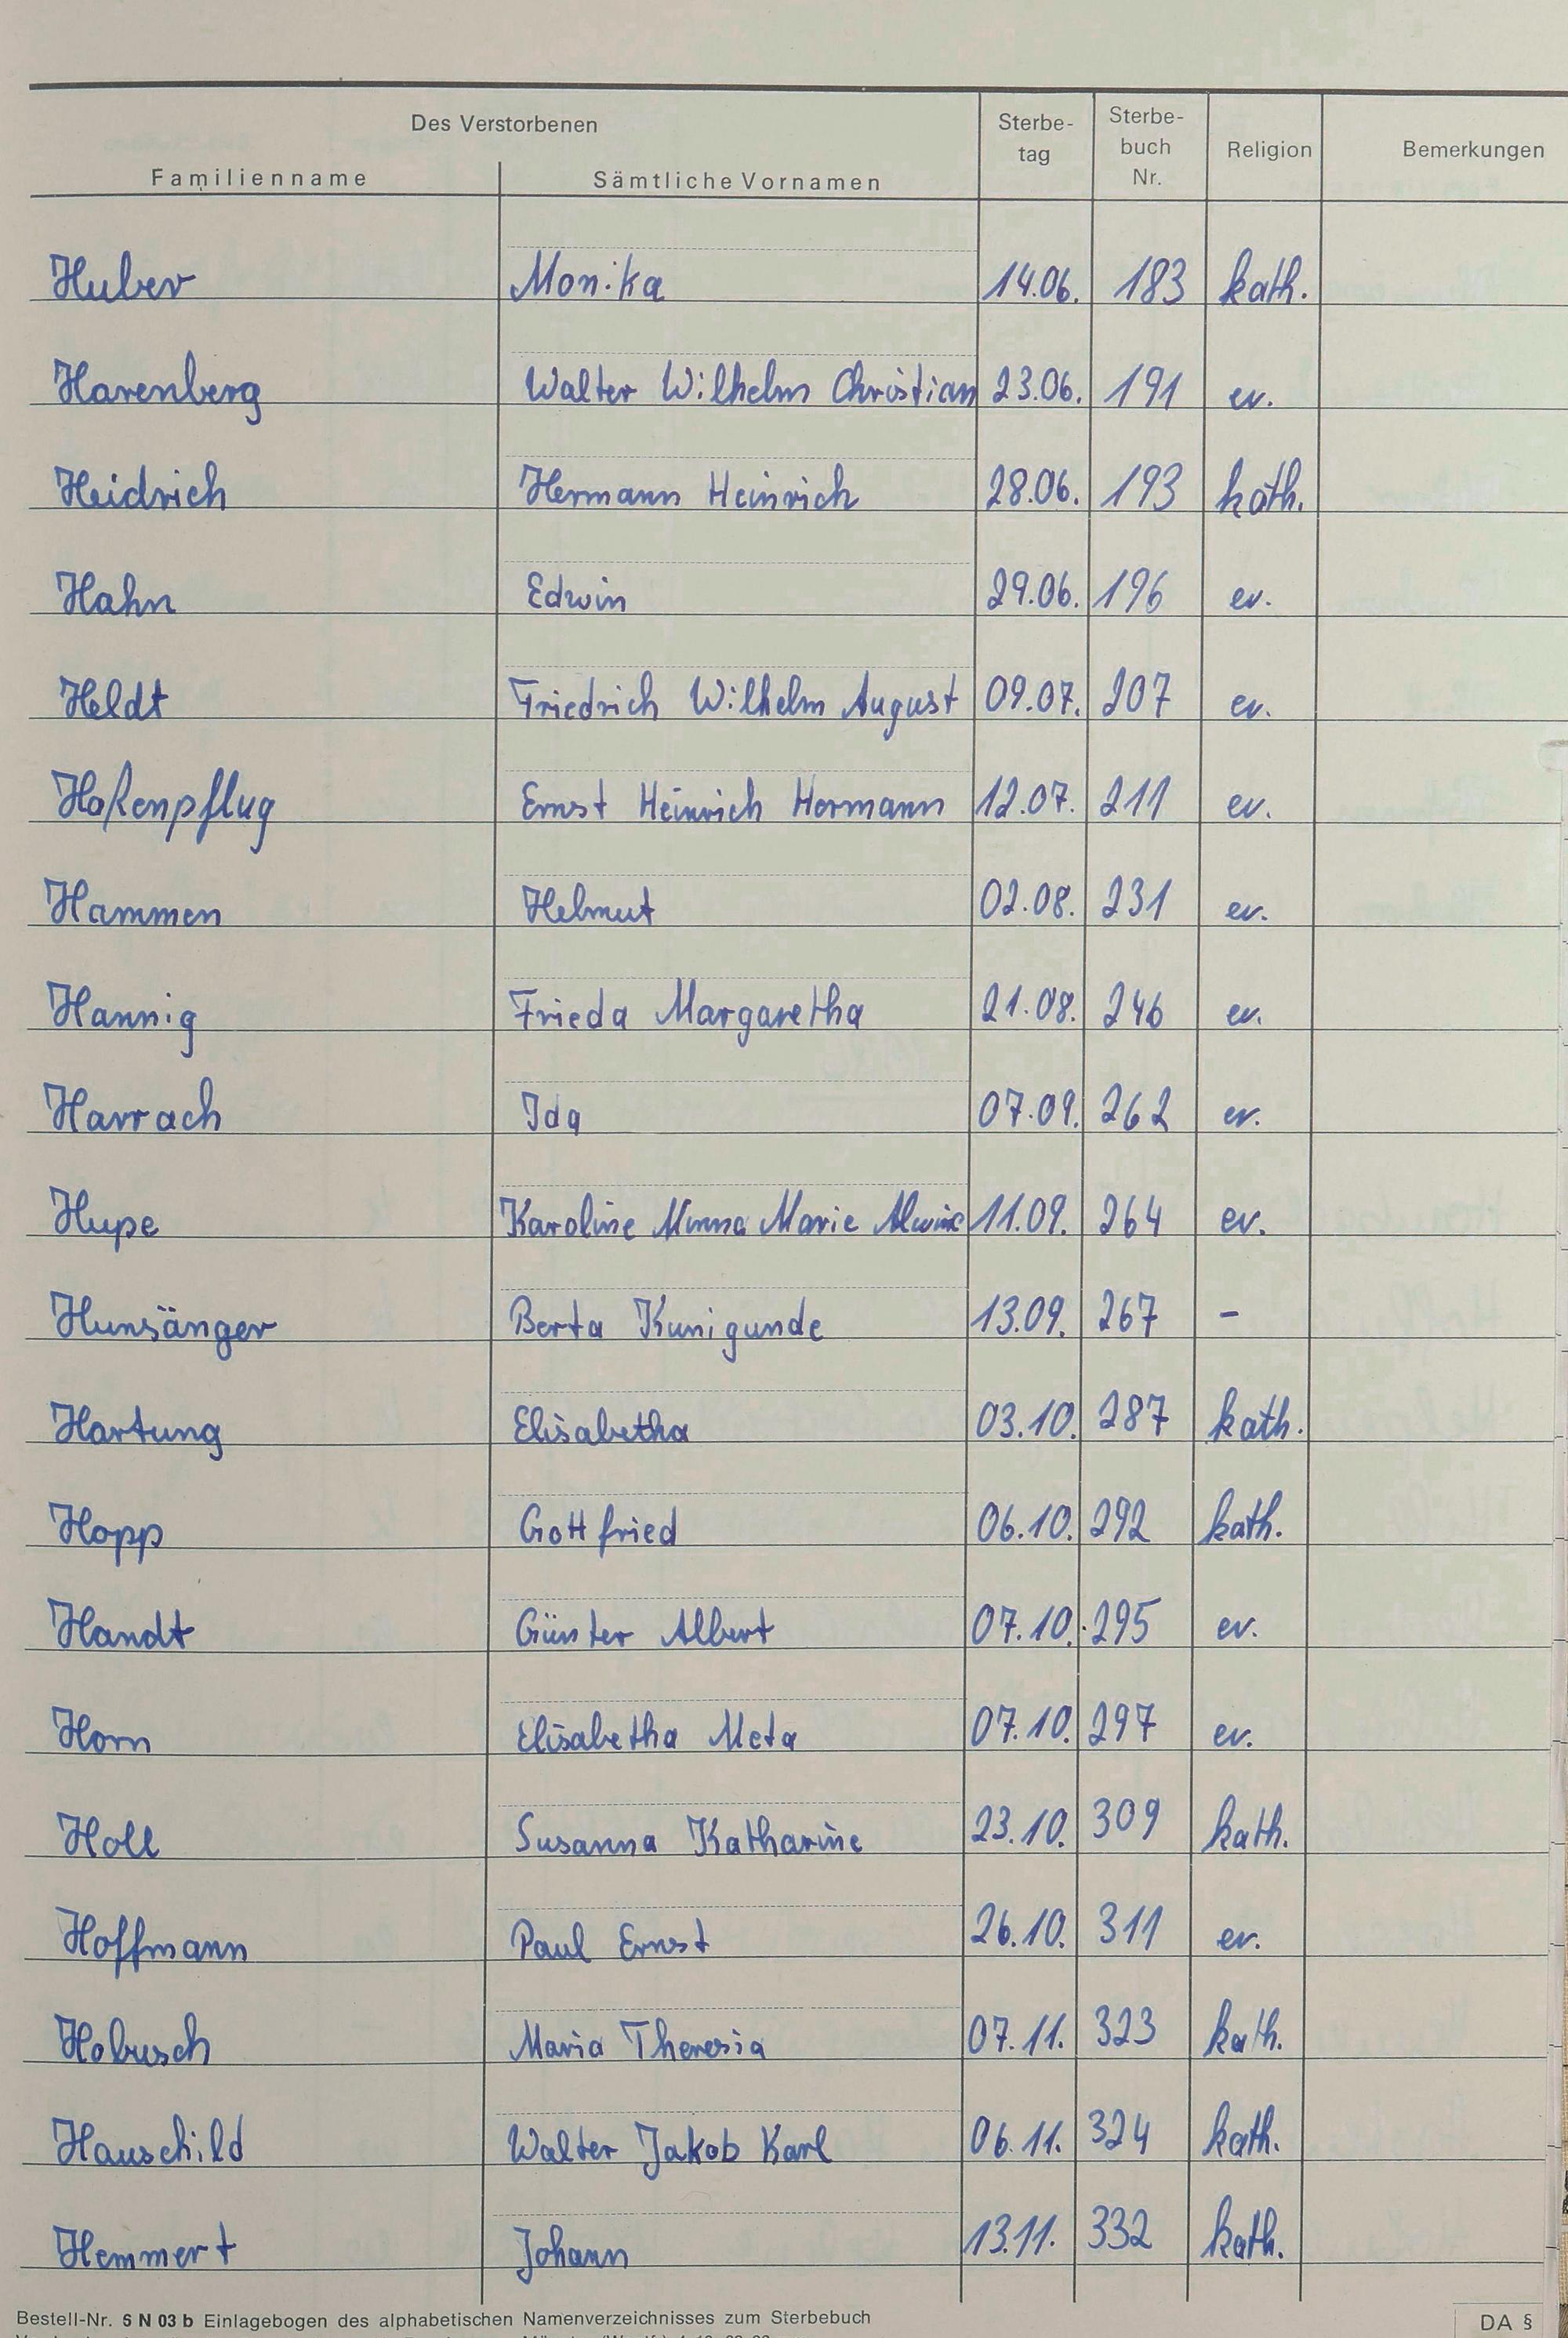 Des Verstorbenen
Familienname Sämtliche Vornamen Sterbe-tag Sterbe-buch Nr. Religion Bemerkungen
Huber Monika 14.06. 183 kath.
Harenberg Walter Wilhelm Christian 23.06. 191 ev.
Heidrich Hermann Heinrich 28.06. 193 kath.
Hahn Edwin 29.06. 196 ev.
Heldt Friedrich Wilhelm August 09.07. 207 ev.
Haßenpflug Ernst Heinrich Hermann 12.07. 211 ev.
Hammen Helmut 02.08. 231 ev.
Hannig Frieda Margaretha 21.08. 246 ev.
Harrach Ida 07.09. 262 ev.
Hupe Karoline Minna Marie Alwine 11.09. 264 ev.
Hunsänger Berta Kunigunde 13.09. 267 -
Hartung Elisabetha 03.10. 287 kath.
Hopp Gottfried 06.10. 292 kath.
Handt Günter Albert 07.10. 295 ev.
Horn Elisabetha Meta 07.10. 297 ev.
Holl Susanna Katharine 23.10. 309 kath.
Hoffmann Paul Ernst 26.10. 311 ev.
Habusch Maria Theresia 07.11. 323 kath.
Hauschild Walter Jakob Karl 06.11. 324 kath.
Hemmert Johann 13.11. 332 kath.
Bestell-Nr. 5 N 03 b Einlagebogen des alphabetischen Namenverzeichnisses zum Sterbebuch DA §